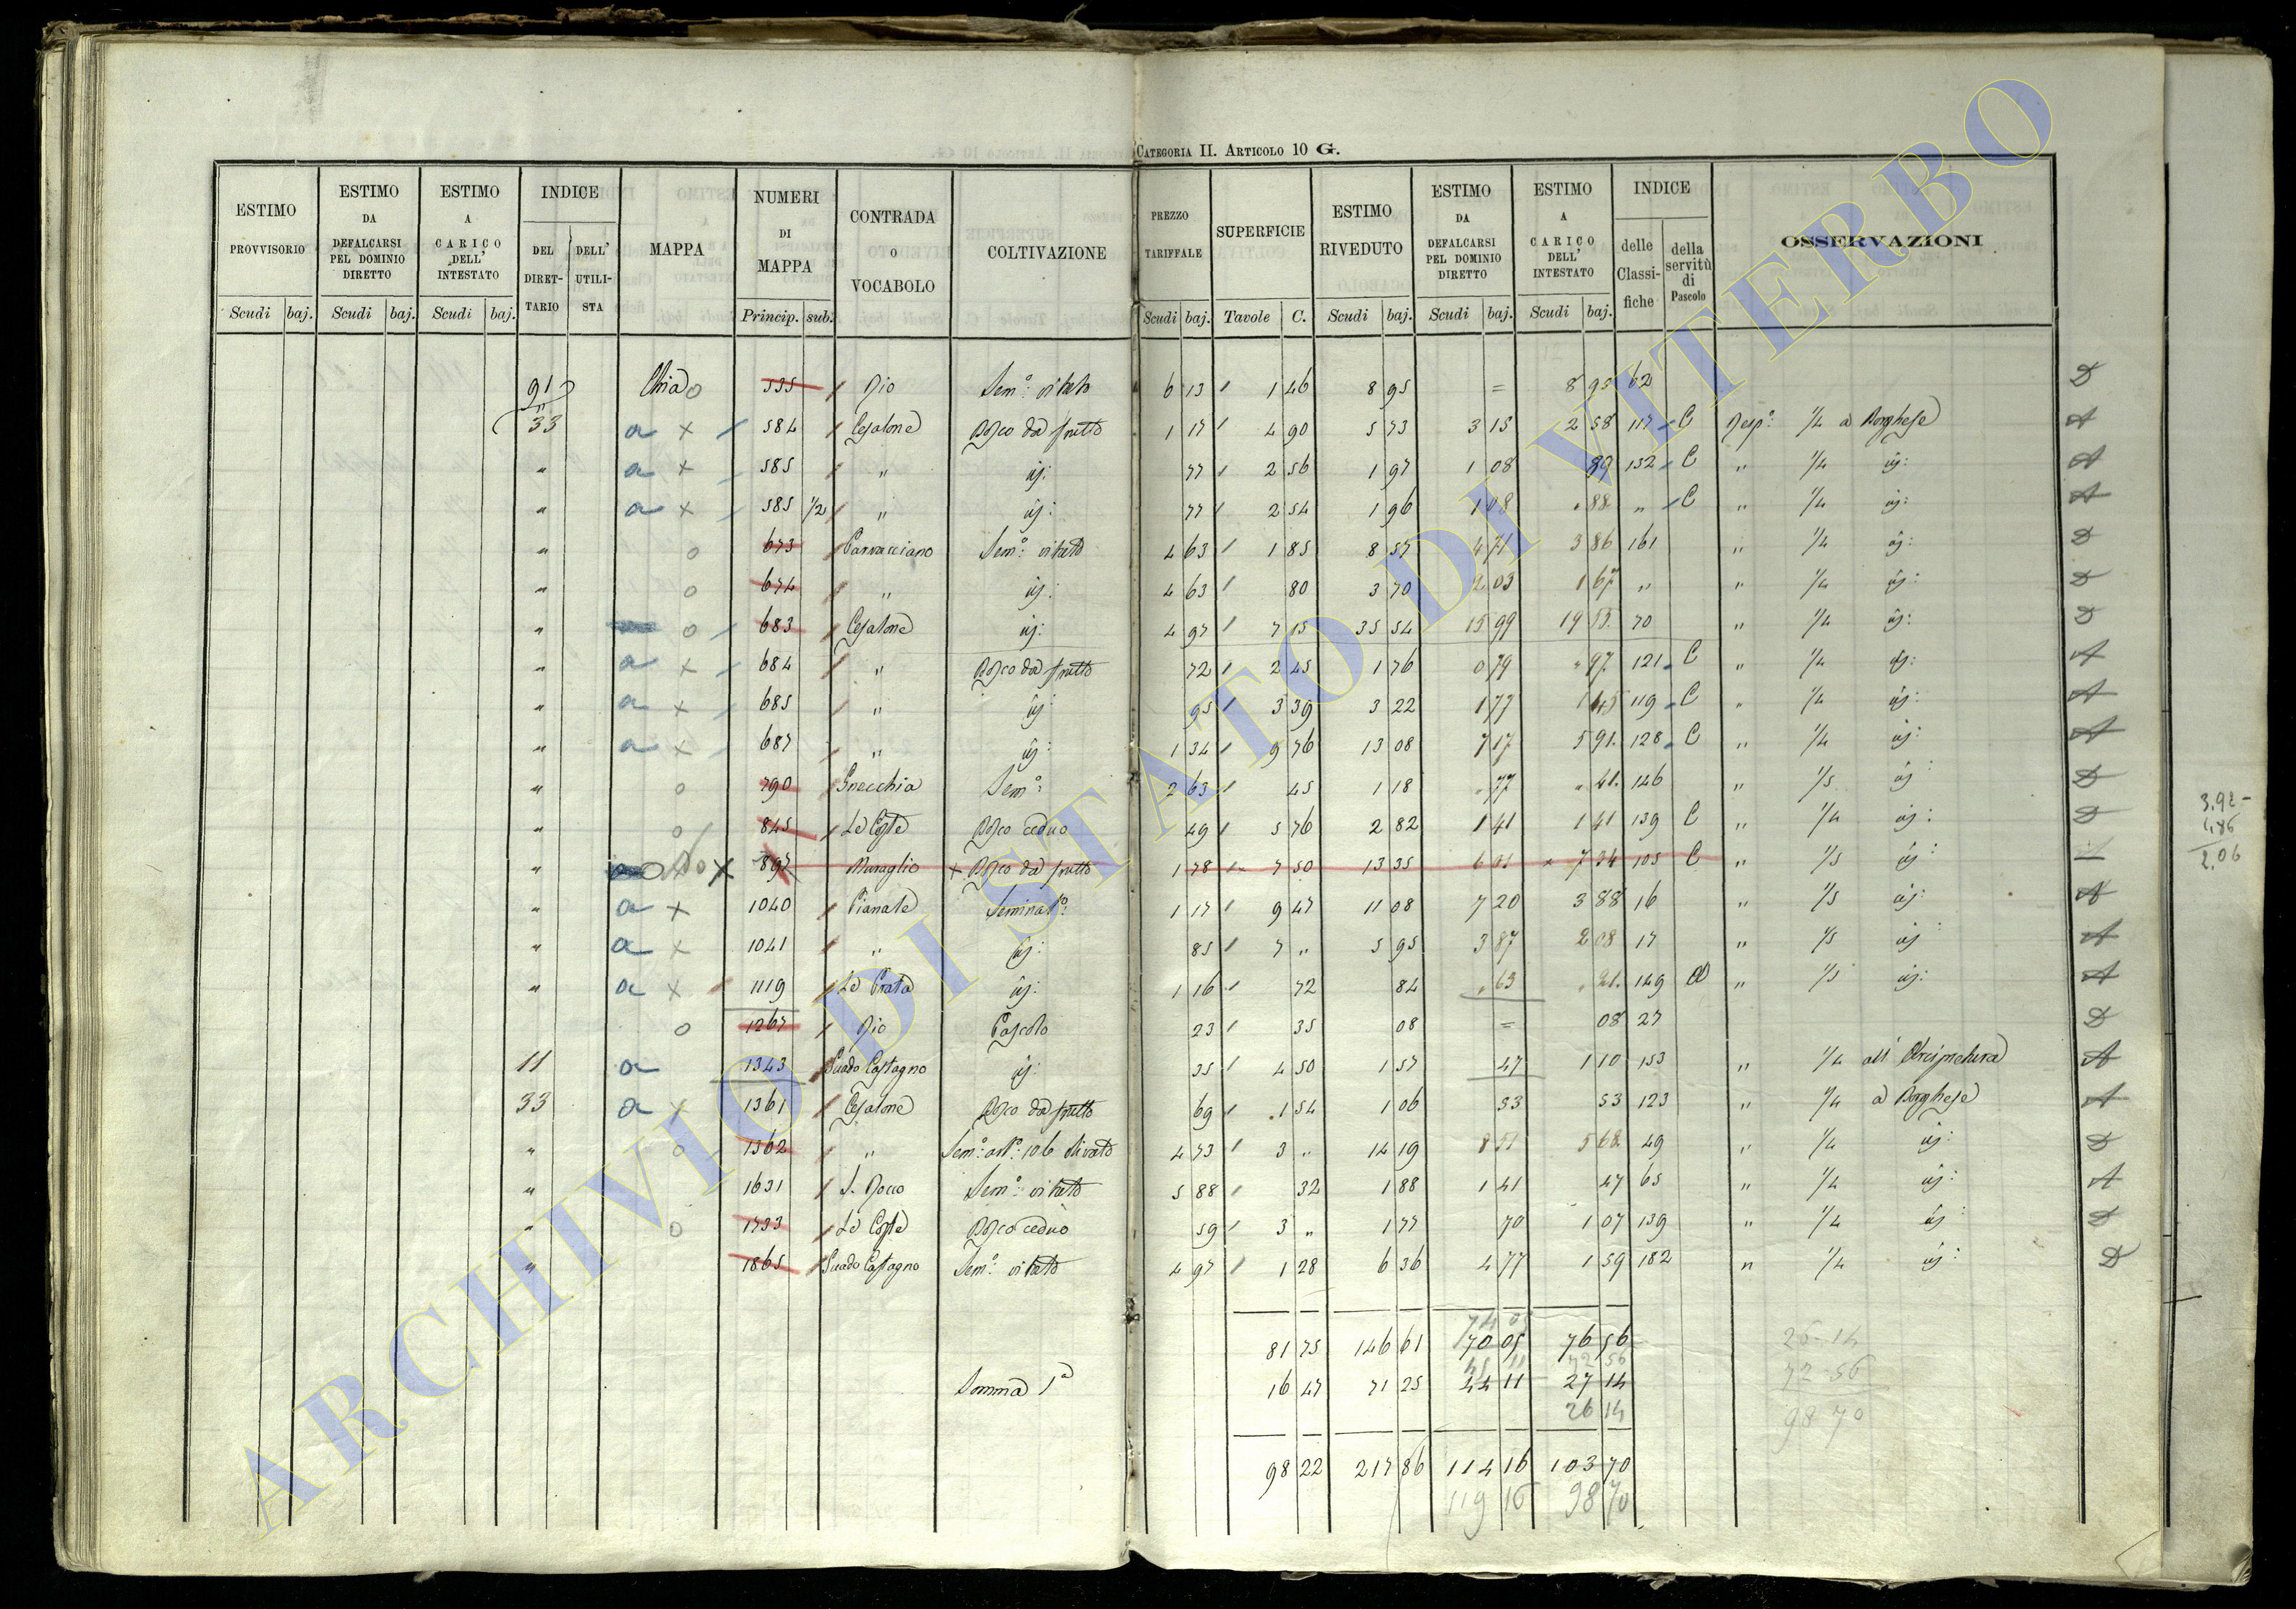 CATEGORIA II. ARTICOLO 10 G.
ESTIMO PROVVISORIO | ESTIMO DA DEFALCARSI PEL DOMINIO DIRETTO | ESTIMO A CARICO DELL' INTESTATO | INDICE DEL DIRETTARIO | DELL' UTILISTA | MAPPA | NUMERI DI MAPPA | CONTRADA O VOCABOLO | COLTIVAZIONE | PREZZO TARIFFALE | SUPERFICIE | ESTIMO RIVEDUTO | ESTIMO DA DEFALCARSI PEL DOMINIO DIRETTO | ESTIMO A CARICO DELL' INTESTATO | INDICE delle Classifiche | della servitù di Pascolo | OSSERVAZIONI
Scudi baj. Scudi baj. Scudi baj. Princip. sub. Scudi baj. Tavole C. Scudi baj. Scudi baj. Scudi baj.
91 Chia o 535 Rio Sem.° vitato 6 13 1 46 8 95 = 8 95 62 D
33 a x 584 Cesalone Bosco da frutto 1 17 4 90 5 73 3 15 2 58 117 C Resp.e 1/4 a Borghese A
" a x 585 " id: 77 2 56 1 97 1 08 89 132 C " 1/4 id: A
" a x 585 1/2 " id: 77 2 54 1 96 1 08 " 88 " C " 1/4 id: A
" o 673 Sem.° vitato 4 63 1 85 8 57 4 71 3 86 161 " 1/4 id: D
" o 674 " id: 4 63 80 3 70 2 03 1 67 " " 1/4 id: D
" o 683 Cesalone id: 4 97 7 15 35 54 15 99 19 55 70 " 1/4 id: D
" a x 684 " Bosco da frutto 72 2 45 1 76 0 79 " 97 121 C " 1/4 id: A
" a x 685 " id: 95 3 39 3 22 1 77 1 45 119 C " 1/4 id: A
" a x 687 " id: 1 34 9 76 13 08 7 17 5 91 128 C " 1/4 id: A
" o 790 Sem.° 2 63 45 1 18 " 77 " 41 146 " 1/5 id: D
" o 845 Le Coste Bosco ceduo 49 5 76 2 82 1 41 1 41 139 C " 1/4 id: D
" 897 Muraglio x Bosco da frutto 1 78 7 50 13 35 6 01 x 7 34 105 C " 1/5 id:
" a x 1040 Pianale Seminat.° 1 17 9 47 11 08 7 20 3 88 16 " 1/5 id: A
" a x 1041 " id: 85 7 " 5 95 3 87 2 08 17 " 1/5 id: A
" a x 1119 Le Prata id: 1 16 72 84 " 63 " 21 149 " 1/5 id: A
o 1267 Rio Pascolo 23 35 08 = 08 27 D
11 a 1343 Guado Castagno id: 35 4 50 1 57 47 1 10 153 " 1/4 all' Arcipretura A
33 a x 1361 Cesalone Bosco da frutto 69 1 54 1 06 53 53 123 " 1/4 a Borghese A
" o 1362 " Sem.° olivato 4 73 3 " 14 19 8 51 5 68 49 " 1/4 id: D
" 1631 S. Rocco Sem.° vitato 5 88 32 1 88 1 41 47 65 " 1/4 id: A
" o 1733 Le Coste Bosco ceduo 59 3 " 1 77 70 1 07 139 " 1/4 id: D
" 1865 Guado Castagno Sem.° vitato 4 97 1 28 6 36 4 77 1 59 182 " 1/4 id: D
3.92 -
1.86
2.06
81 75 146 61 70 05 76 56
26 - 14
72 - 56
98 70
72 56
Somma 1ª 16 47 71 25 44 11 27 14
26 14
98 22 217 86 114 16 103 70
119 16 98 70
ARCHIVIO DI STATO DI VITERBO